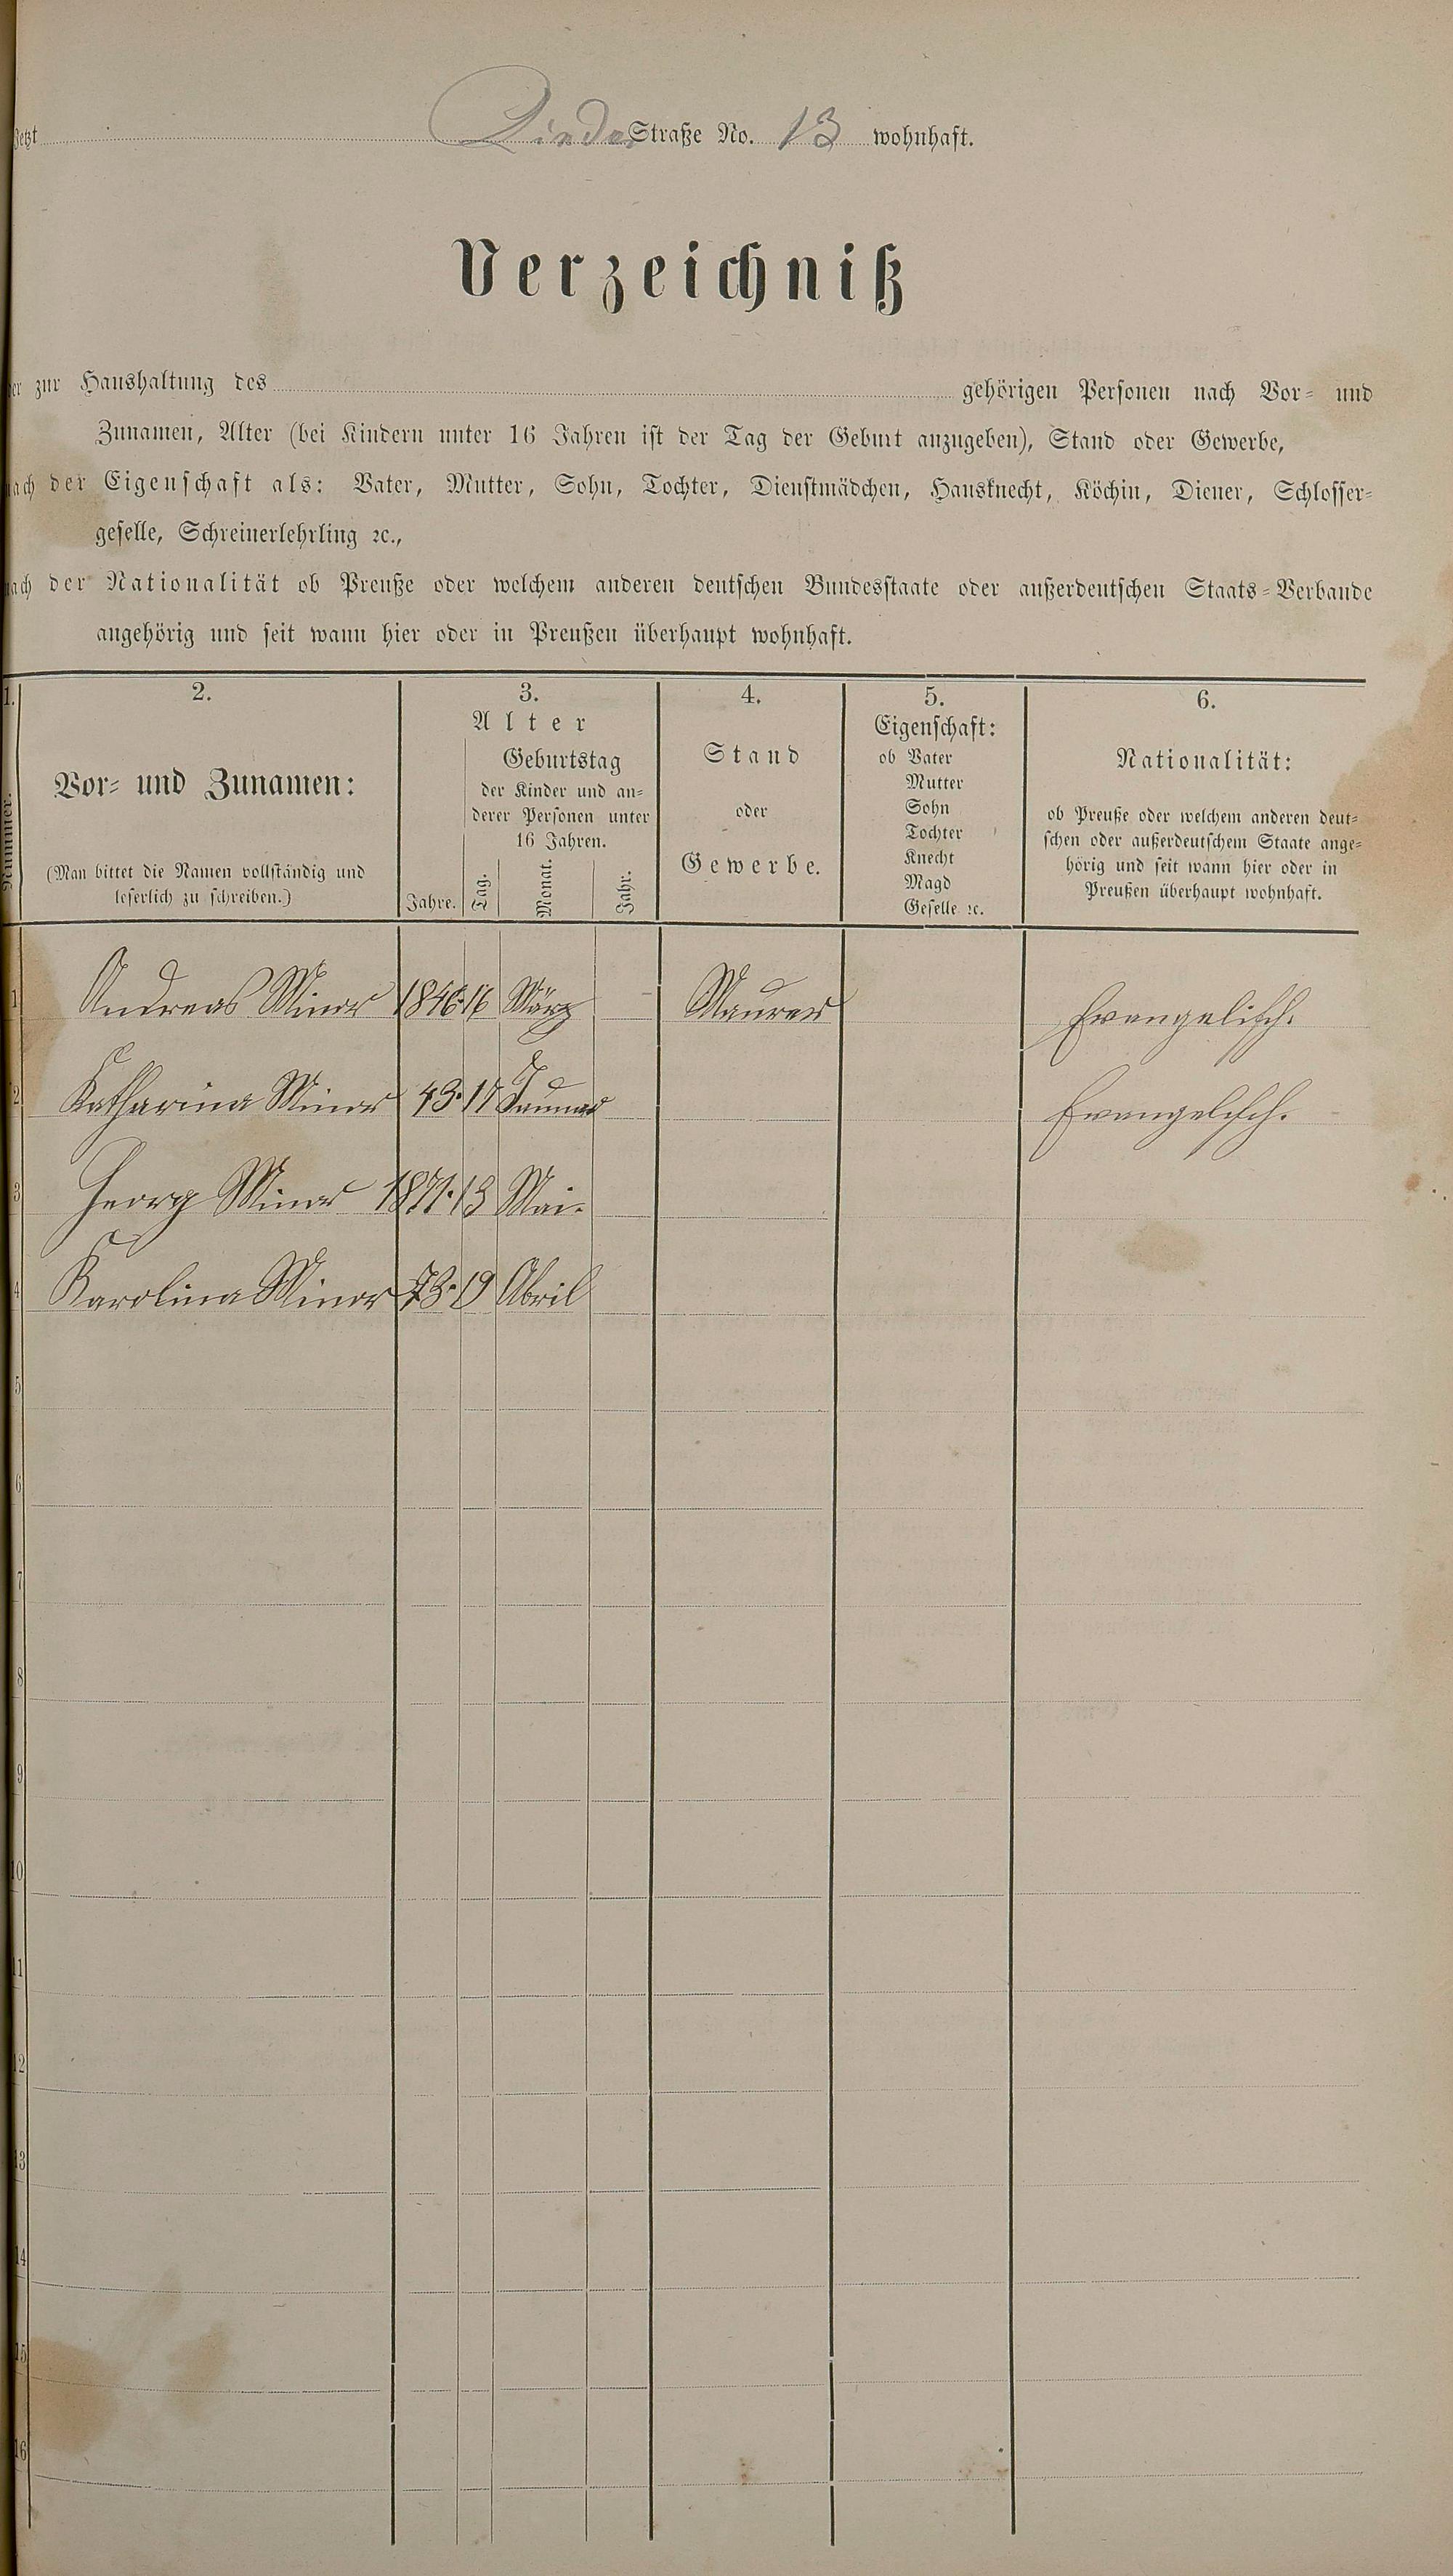 Jetzt Linden Straße No. 13 wohnhaft.
Verzeichniß
der zur Haushaltung des gehörigen Personen nach Vor- und
Zunamen, Alter (bei Kindern unter 16 Jahren ist der Tag der Geburt anzugeben), Stand oder Gewerbe,
nach der Eigenschaft als: Vater, Mutter, Sohn, Tochter, Dienstmädchen, Hausknecht, Köchin, Diener, Schlosser-
geselle, Schreinerlehrling ꝛc.,
nach der Nationalität ob Preuße oder welchem anderen deutschen Bundesstaate oder außerdeutschen Staats-Verbande
angehörig und seit wann hier oder in Preußen überhaupt wohnhaft.
1.
Nummer.
2.
Vor- und Zunamen:
(Man bittet die Namen vollständig und
leserlich zu schreiben.)
3.
Alter
Geburtstag
der Kinder und an-
derer Personen unter
16 Jahren.
Jahre. Tag. Monat. Jahr.
4.
Stand
oder
Gewerbe.
5.
Eigenschaft:
ob Vater
Mutter
Sohn
Tochter
Knecht
Magd
Geselle ꝛc.
6.
Nationalität:
ob Preuße oder welchem anderen deut-
schen oder außerdeutschem Staate ange-
hörig und seit wann hier oder in
Preußen überhaupt wohnhaft.
1 Andreas Minor 1846 16 März Maurer Evangelisch.
2 Katharina Minor 43. 17 Januar Evangelisch.
3 Georg Minor 1871. 13 Mai.
4 Karolina Minor 73. 19 Abril
5
6
7
8
9
10
11
12
13
14
15
16